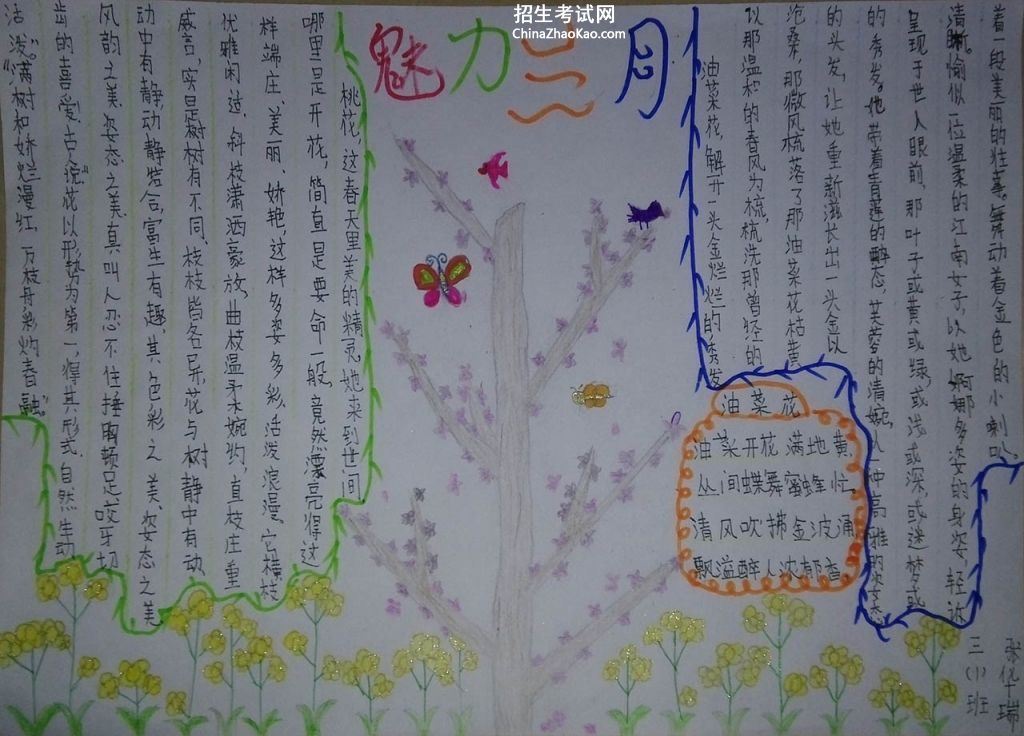 招生考试网
ChinaZhaoKao.com
魅力三月
油菜花,解开一头金烂烂的秀发
似那温和的春风为梳,梳洗那曾经的
沧桑,那微风梳落了那油菜花枯黄
的头发,让她重新滋长出一头金以
的秀发。她带着青莲的醉态,芙蓉的清婉,以一种高雅的姿态
呈现于世人眼前,那叶子或黄或绿,或浅或深,或迷梦或
清晰。愉似一位温柔的江南女子,以她婀娜多姿的身姿,轻诉
着一段美丽的往事。舞动着金色的小喇叭
桃花,这春天里美的精灵,她来到世间
哪里是开花,简直是要命一般,竟然漂亮得这
样端庄、美丽、娇艳,这样多姿多彩、活泼浪漫。它横枝
优雅闲适,斜枝潇洒豪放,曲枝温柔婉约,直枝庄重
威言,实是树树有不同、枝枝皆各异,花与树静中有动
动中有静,动静结合,富生有趣,其色彩之美、姿态之美
风韵之美、姿态之美,真叫人忍不住捶胸顿足咬牙切
齿的喜爱,古人说"花以形势为第一,得其形式,自然生动
活泼。"满树和娇烂漫红,万枝丹彩灼春融。"
油菜花
油菜开花满地黄,
丛间蝶舞蜜蜂忙,
清风吹拂金波涌
飘溢醉人浓郁香。
三(1)班